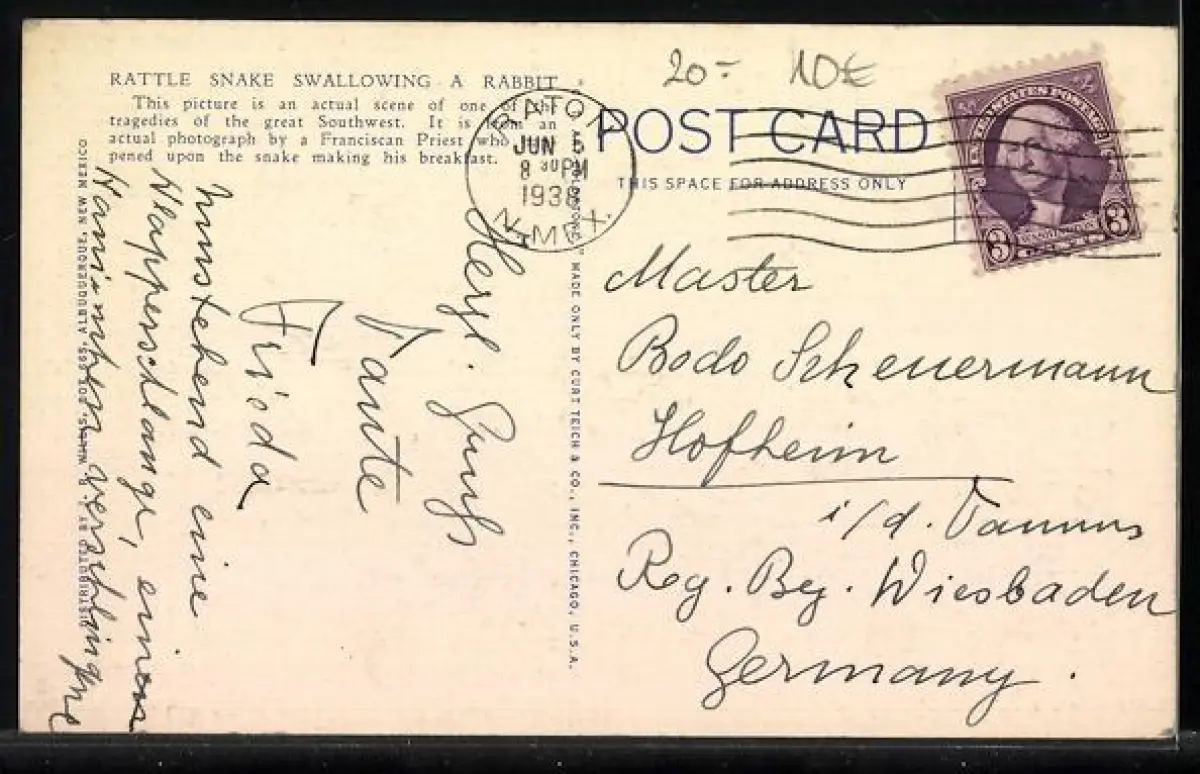 RATTLE SNAKE SWALLOWING A RABBIT
This picture is an actual scene of one of the
tragedies of the great Southwest. It is from an
actual photograph by a Franciscan Priest who
pened upon the snake making his breakfast.
Herzl. Gruß
Tante
Frida
Umstehend eine
Klapperschlange, einen
verschlingend
ALBUQUERQUE, NEW MEXICO
DISTRIBUTED BY
MADE ONLY BY CURT TEICH & CO., INC., CHICAGO, U.S.A.
20- 10€
RATON
JUN 5
8 30 PM
1938
N. MEX.
POST CARD
THIS SPACE FOR ADDRESS ONLY
UNITED STATES POSTAGE
WASHINGTON
3 CENTS 3
Master
Bodo Scheuermann
Hofheim
i/d. Taunus
Reg. Bez. Wiesbaden
Germany.